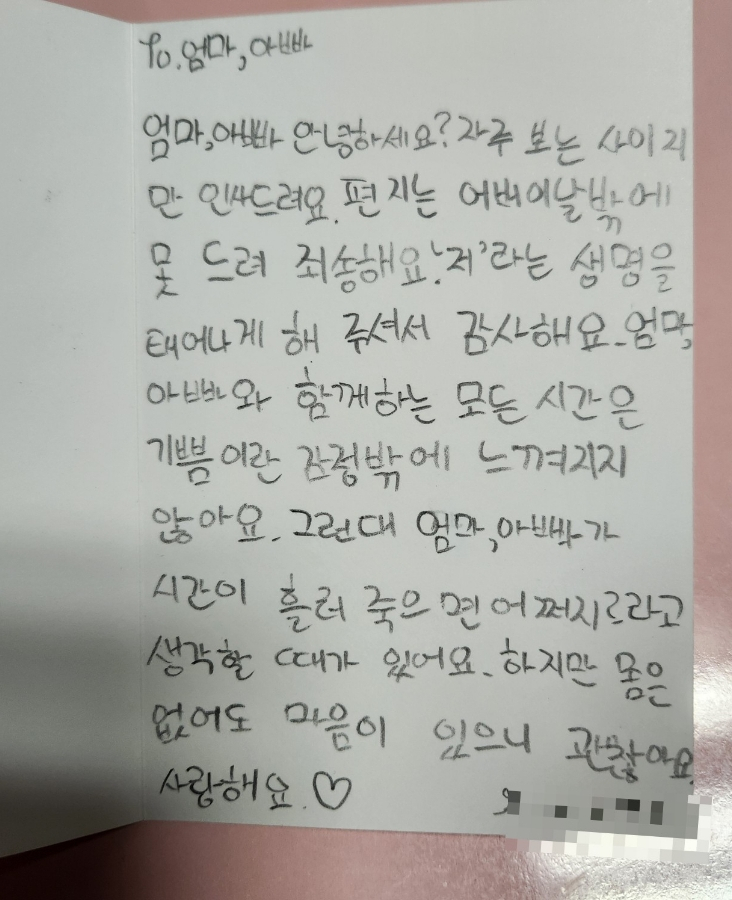 To.엄마,아빠
엄마,아빠 안녕하세요? 자주 보는 사이지
만 인사드려요. 편지는 어버이날밖에
못 드려 죄송해요.'저'라는 생명을
태어나게 해 주셔서 감사해요. 엄마,
아빠와 함께하는 모든 시간은
기쁨이란 감정밖에 느껴지지
않아요. 그런대 엄마,아빠가
시간이 흘러 죽으면 어쩌지?라고
생각할 때가 있어요. 하지만 몸은
없어도 마음이 있으니 괜찮아요.
사랑해요.♡